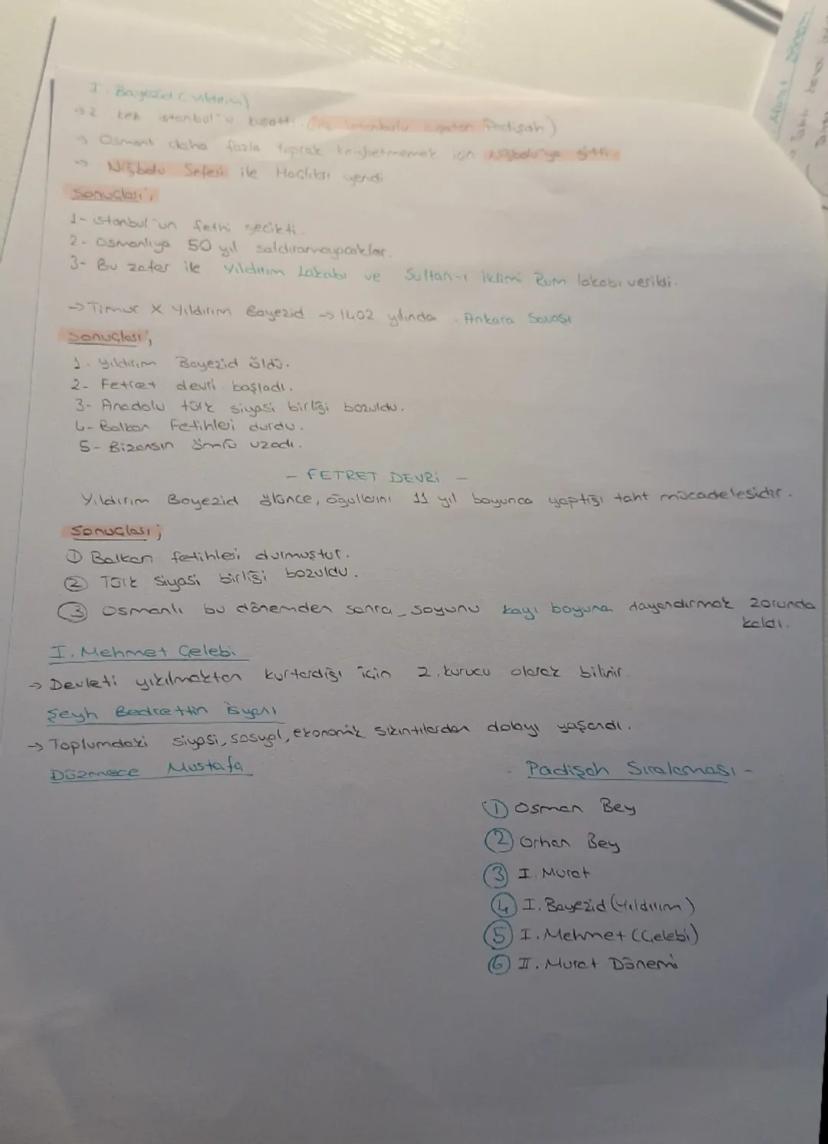 I. Bayezid (Yıldırım)
→ 2 kez istanbul'u kuşattı. (İlk İstanbulu kuşatan Padişah)
→ Osmanlı daha fazla toprak kaybetmemek için Niğbolu'ya gitti.
→ Niğbolu Seferi ile Haçlıları yendi
Sonuçları;
1- istanbul'un fethi gecikti.
2- Osmanlıya 50 yıl saldıramayacaklar.
3- Bu zafer ile Yıldırım Lakabı ve Sultan-ı iklimi Rum lakabı verildi.
→ Timur X Yıldırım Bayezid → 1402 yılında Ankara Savaşı
Sonuçları;
1. Yıldırım Bayezid öldü.
2- Fetret devri başladı.
3- Anadolu türk siyasi birliği bozuldu.
4- Balkan Fetihleri durdu.
5- Bizansın ömrü uzadı.
- FETRET DEVRİ -
Yıldırım Bayezid ölünce, oğullarını 11 yıl boyunca yaptığı taht mücadelesidir.
Sonuçları;
① Balkan fetihleri durmuştur.
② Türk Siyasi birliği bozuldu.
③ Osmanlı bu dönemden sonra soyunu kayı boyuna dayandırmak zorunda
kaldı.
I. Mehmet Çelebi
→ Devleti yıkılmaktan kurtardığı için 2. kurucu olarak bilinir
Şeyh Bedrettin İsyanı
→ Toplumdaki siyasi, sosyal, ekonomik sıkıntılardan dolayı yaşandı.
Düzmece Mustafa
- Padişah Sıralaması -
① Osman Bey
② Orhan Bey
③ I. Murat
④ I. Bayezid (Yıldırım)
⑤ I. Mehmet (Çelebi)
⑥ II. Murat Dönemi